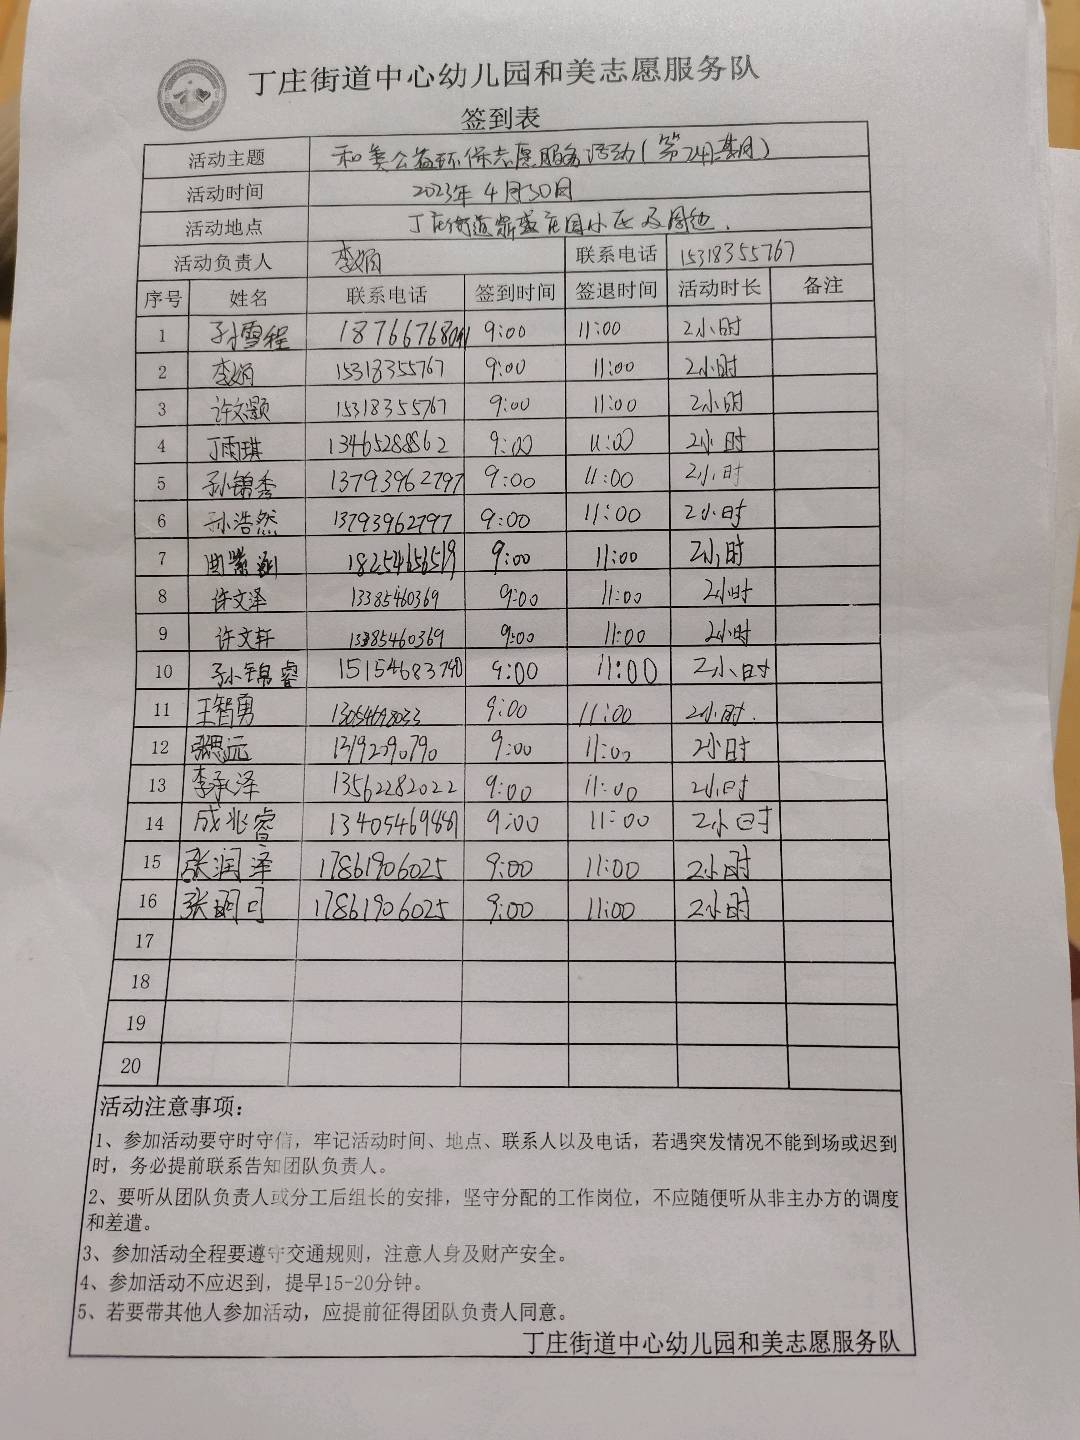 丁庄街道中心幼儿园和美志愿服务队
签到表
活动主题 和美公益环保志愿服务活动(第24期)
活动时间 2023年4月30日
活动地点 丁庄街道鼎盛花园小区及周边.
活动负责人 李娟 联系电话 15318355767
序号 姓名 联系电话 签到时间 签退时间 活动时长 备注
1 孙雪程 9:00 11:00 2小时
2 李娟 15318355767 9:00 11:00 2小时
3 许文灏 15318355767 9:00 11:00 2小时
4 丁雨琪 13465288862 9:00 11:00 2小时
5 孙锦秀 13793962797 9:00 11:00 2小时
6 孙浩然 13793962797 9:00 11:00 2小时
7 18254656519 9:00 11:00 2小时
8 许文泽 13385460369 9:00 11:00 2小时
9 许文轩 13385460369 9:00 11:00 2小时
10 孙锦睿 15154683740 9:00 11:00 2小时
11 王智勇 13054698033 9:00 11:00 2小时.
12 9:00 11:00 2小时
13 李承泽 13562282022 9:00 11:00 2小时
14 成兆睿 9:00 11:00 2小时
15 张润泽 17861906025 9:00 11:00 2小时
16 张珂可 17861906025 9:00 11:00 2小时
17
18
19
20
活动注意事项：
1、参加活动要守时守信，牢记活动时间、地点、联系人以及电话，若遇突发情况不能到场或迟到
时，务必提前联系告知团队负责人。
2、要听从团队负责人或分工后组长的安排，坚守分配的工作岗位，不应随便听从非主办方的调度
和差遣。
3、参加活动全程要遵守交通规则，注意人身及财产安全。
4、参加活动不应迟到，提早15-20分钟。
5、若要带其他人参加活动，应提前征得团队负责人同意。
丁庄街道中心幼儿园和美志愿服务队